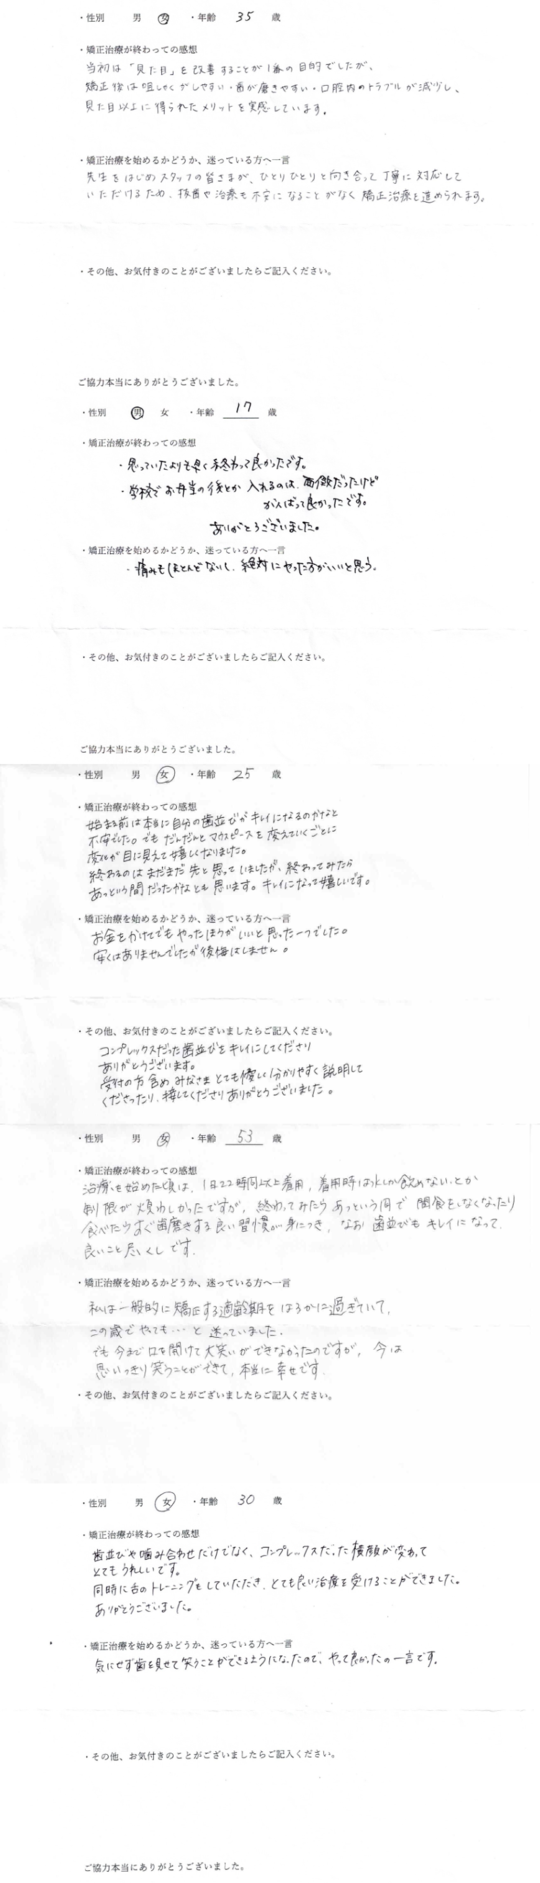 ・性別 男 女 ・年齢 35 歳
・矯正治療が終わっての感想
当初は「見た目」を改善することが1番の目的でしたが、
矯正後は咀しゃくがしやすい・歯が磨きやすい・口腔内のトラブルが減少し、
見た目以上に得られたメリットを実感しています。
・矯正治療を始めるかどうか、迷っている方へ一言
先生をはじめスタッフの皆さまが、ひとりひとりと向き合って丁寧に対応して
いただけるため、抜歯や治療も不安になることがなく矯正治療を進められます。
・その他、お気付きのことがございましたらご記入ください。
ご協力本当にありがとうございました。
・性別 男 女 ・年齢 17 歳
・矯正治療が終わっての感想
・思っていたよりも早く終わって良かったです。
・学校でお弁当の後とか入れるのは、面倒だったけど
がんばって良かったです。
ありがとうございました。
・矯正治療を始めるかどうか、迷っている方へ一言
・痛みもほとんどないし、絶対にやった方がいいと思う。
・その他、お気付きのことがございましたらご記入ください。
ご協力本当にありがとうございました。
・性別 男 女 ・年齢 25 歳
・矯正治療が終わっての感想
始まる前は本当に自分の歯並びがキレイになるのかなと
不安でした。でもだんだんとマウスピースを変えていくごとに
変化が目に見えて嬉しくなりました。
終わるのはまだまだ先と思っていましたが、終わってみたら
あっという間だったかなとも思います。キレイになって嬉しいです。
・矯正治療を始めるかどうか、迷っている方へ一言
お金をかけてでもやったほうがいいと思った一つでした。
安くはありませんでしたが後悔はしません。
・その他、お気付きのことがございましたらご記入ください。
コンプレックスだった歯並びをキレイにしてくださり
ありがとうございます。
受付の方含めみなさまとても優しく分かりやすく説明して
くださったり、接してくださりありがとうございました。
・性別 男 女 ・年齢 53 歳
・矯正治療が終わっての感想
治療を始めた頃は、1日22時間以上着用、着用時は水しか飲めないとか
制限が煩わしかったですが、終わってみたらあっという間で 間食をしなくなったり
食べたらすぐ歯磨きする良い習慣が身につき、なお 歯並びもキレイになって、
良いこと尽くしです。
・矯正治療を始めるかどうか、迷っている方へ一言
私は一般的に矯正する適齢期をはるかに過ぎていて、
この歳でやっても…と迷っていました。
でも今まで口を開けて大笑いができなかったのですが、今は
思いっきり笑うことができて、本当に幸せです。
・その他、お気付きのことがございましたらご記入ください。
・性別 男 女 ・年齢 30 歳
・矯正治療が終わっての感想
歯並びや噛み合わせだけでなく、コンプレックスだった横顔が変わって
とてもうれしいです。
同時に舌のトレーニングもしていただき、とても良い治療を受けることができました。
ありがとうございました。
・矯正治療を始めるかどうか、迷っている方へ一言
気にせず歯を見せて笑うことができるようになったので、やって良かったの一言です。
・その他、お気付きのことがございましたらご記入ください。
ご協力本当にありがとうございました。